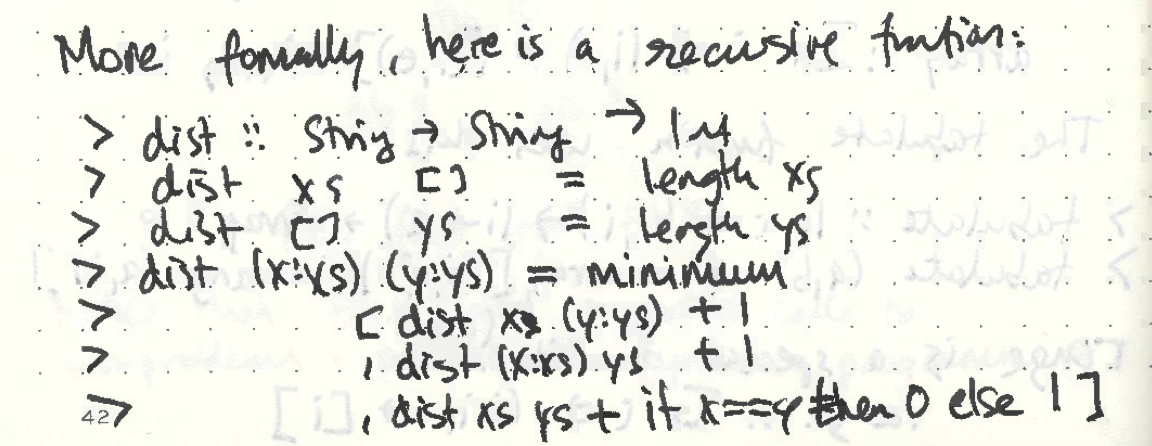 More formally, here is a recursive function:
> dist :: String → String → Int
> dist xs [] = length xs
> dist [] ys = length ys
> dist (x:xs) (y:ys) = minimum
> [ dist xs (y:ys) + 1
> , dist (x:xs) ys + 1
42 > , dist xs ys + if x==y then 0 else 1 ]